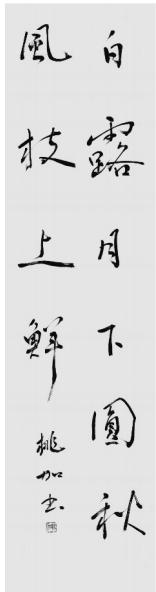 白露月下圓秋
風枝上鮮
桃加书